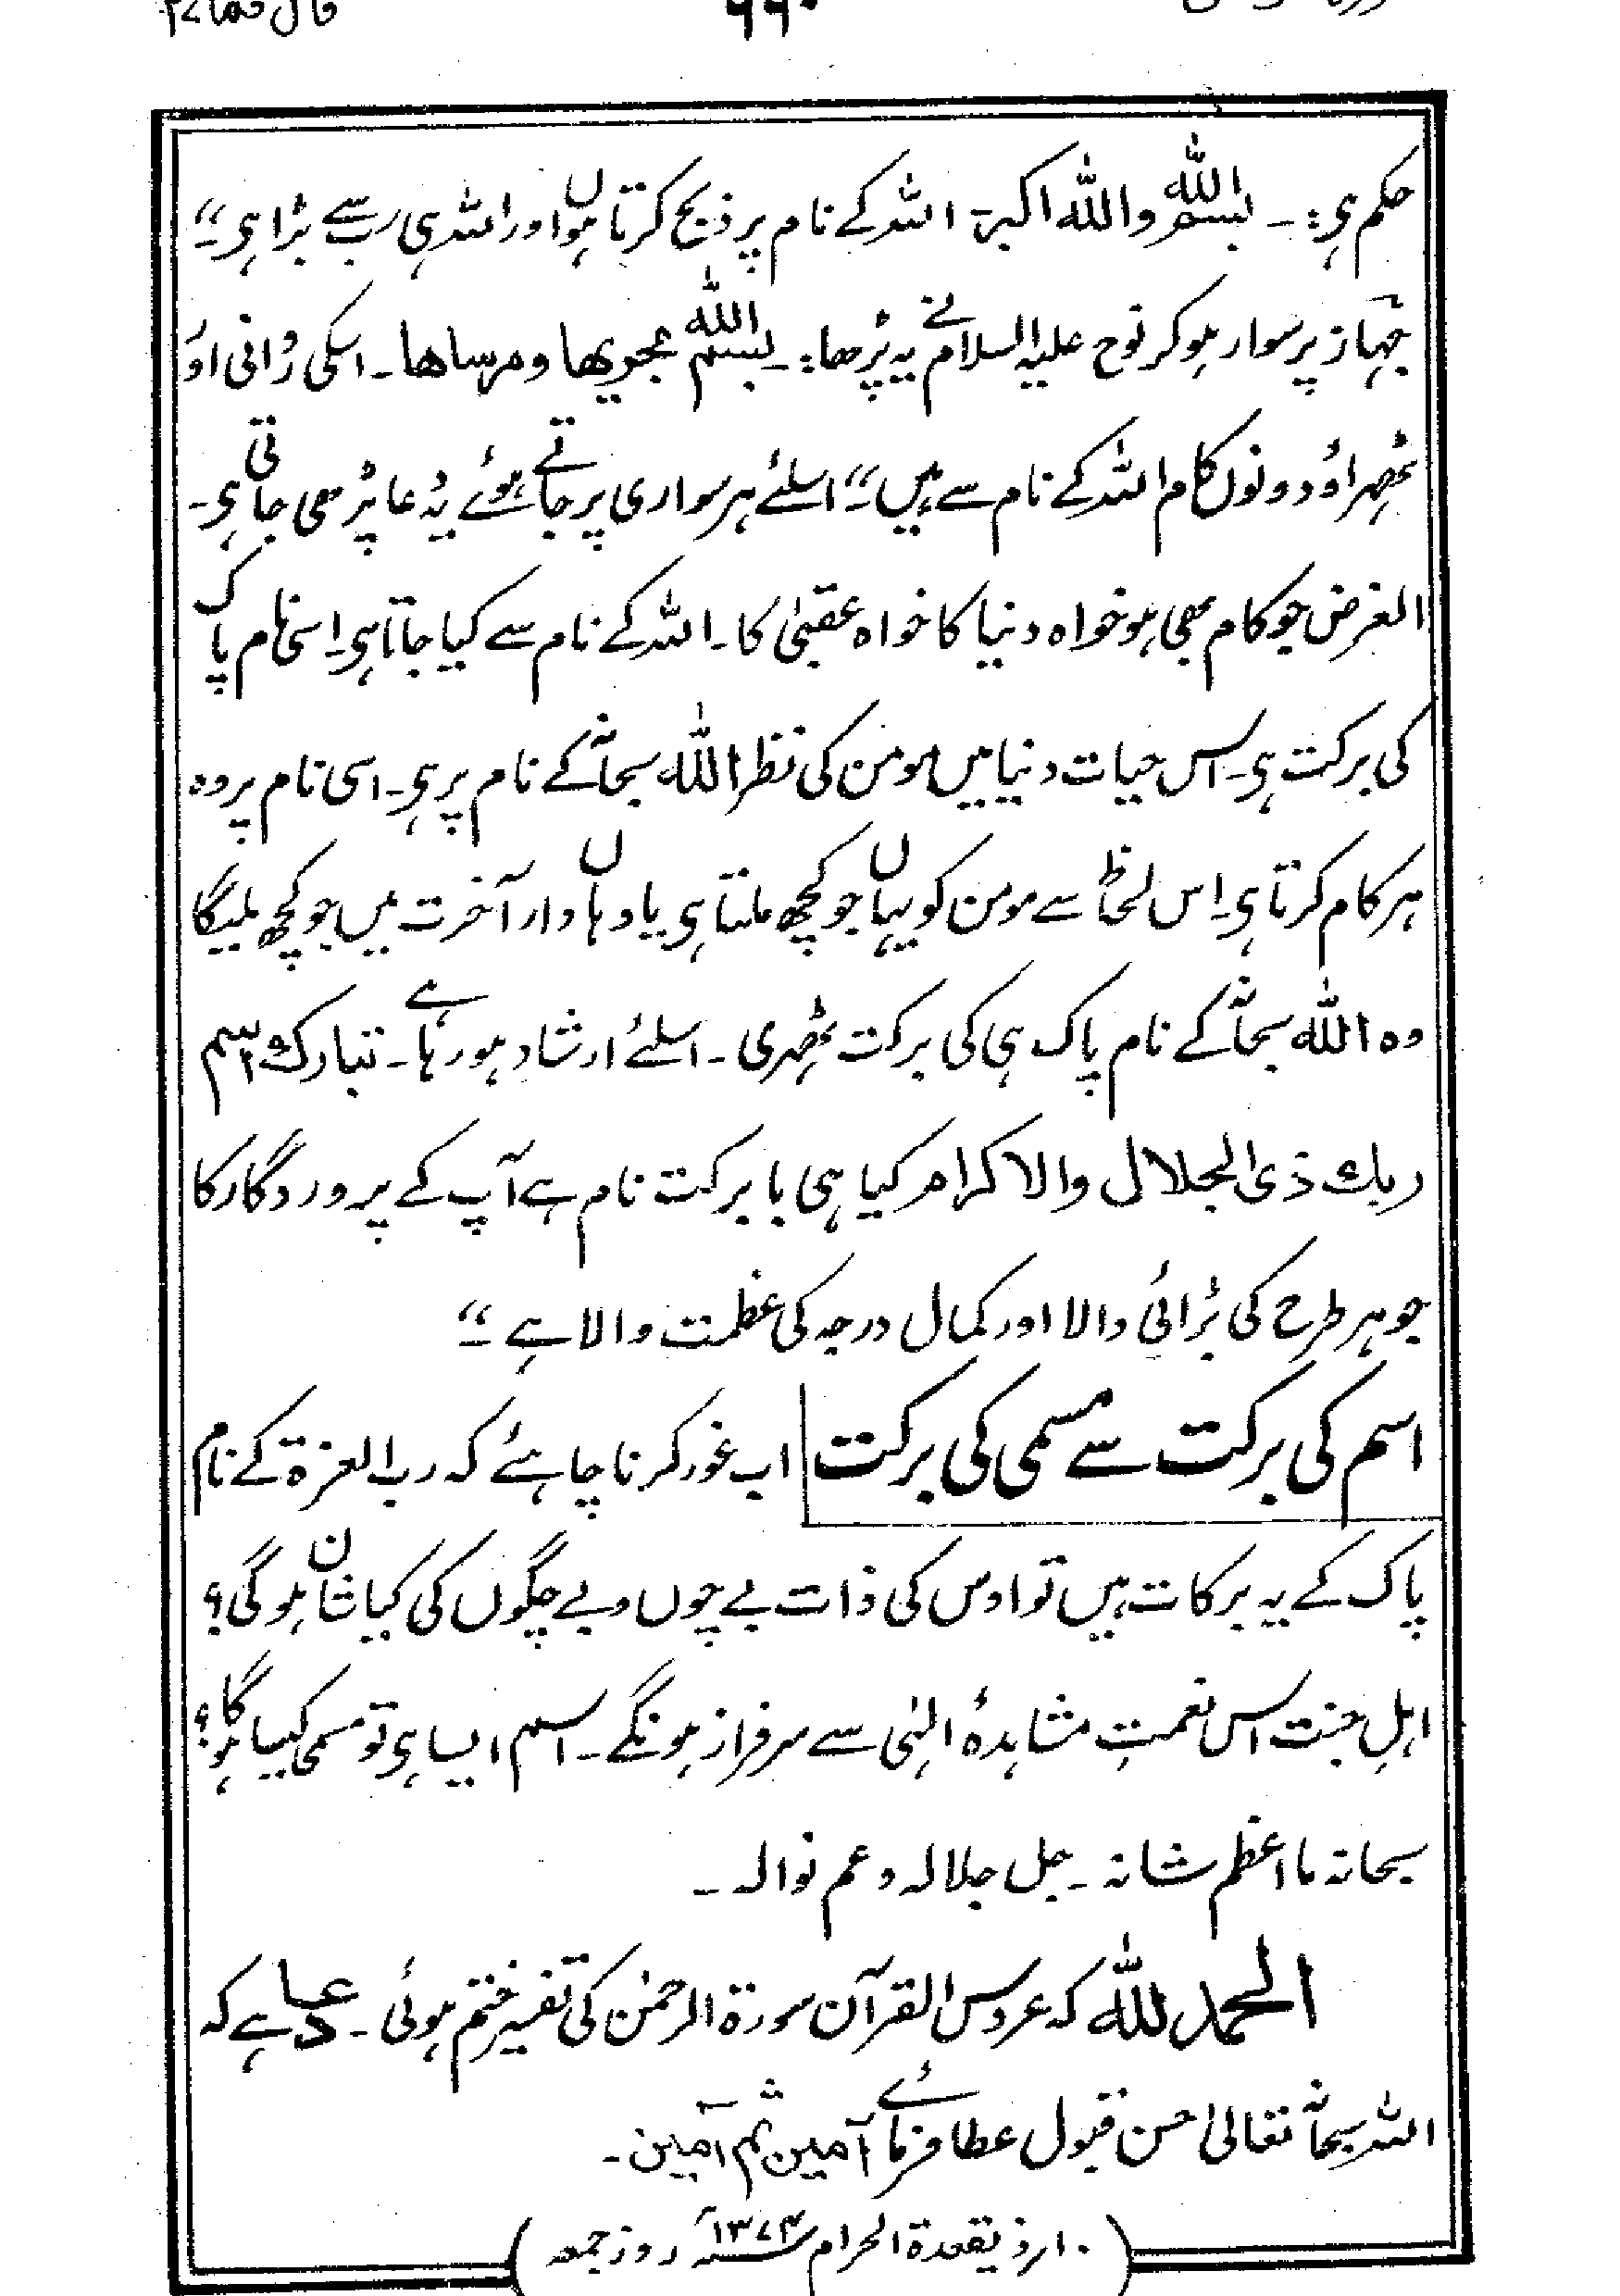 ۶۶۰
حکم ہی:۔ بسم اللہ واللہ اکبر۔ اللہ کے نام پر ذبح کرتا ہوں اور اللہ ہی سب سے بڑا ہی۔"
جہاز پر سوار ہو کر نوح علیہ السلام نے یہ پڑھا:۔ بسم اللہ مجریھا ومرساھا۔ اسکی روانی اور
ٹھہراؤ دونوں کام اللہ کے نام سے ہیں۔" اسلئے ہر سواری پر جاتے ہوئے یہ دعا پڑھی جاتی ہی۔
الغرض جو کام بھی ہو خواہ دنیا کا خواہ عقبیٰ کا۔ اللہ کے نام سے کیا جاتا ہی۔ اسی نام پاک
کی برکت ہی۔ اس حیات دنیا میں مومن کی نظر اللہ سبحانہ کے نام پر ہی۔ اسی نام پر وہ
ہر کام کرتا ہی۔ اس لحاظ سے مومن کو یہاں جو کچھ ملتا ہی یا وہاں دار آخرت میں جو کچھ ملیگا
وہ اللہ سبحانہ کے نام پاک ہی کی برکت ٹھہری۔ اسلئے ارشاد ہو رہا ہے۔ تبارک اسم
ربک ذی الجلال والاکرام کیا ہی بابرکت نام ہے آپ کے پروردگار کا
جو ہر طرح کی بڑائی والا اور کمال درجہ کی عظمت والا ہے۔"
اسم کی برکت سے مسمی کی برکت اب غور کرنا چاہئے کہ رب العزۃ کے نام
پاک کے یہ برکات ہیں تو اوس کی ذات بے چوں و بے چگوں کی کیا شان ہو گی؟
اہلِ جنت اس نعمتِ مشاہدۂ الہٰی سے سرفراز ہونگے۔ اسم ایسا ہی تو مسمی کیسا ہوگا؟
سبحانہ ما اعظم شانہ۔ جل جلالہ وعم نوالہ۔
الحمد للہ کہ عروس القرآن سورۃ الرحمٰن کی تفسیر ختم ہوئی۔ دعا ہے کہ
اللہ سبحانہ تعالیٰ حسن قبول عطا فرمائے آمین ثم آمین۔
(۱۰ر ذیقعدۃ الحرام ۱۳۷۴ھ روز جمعہ)